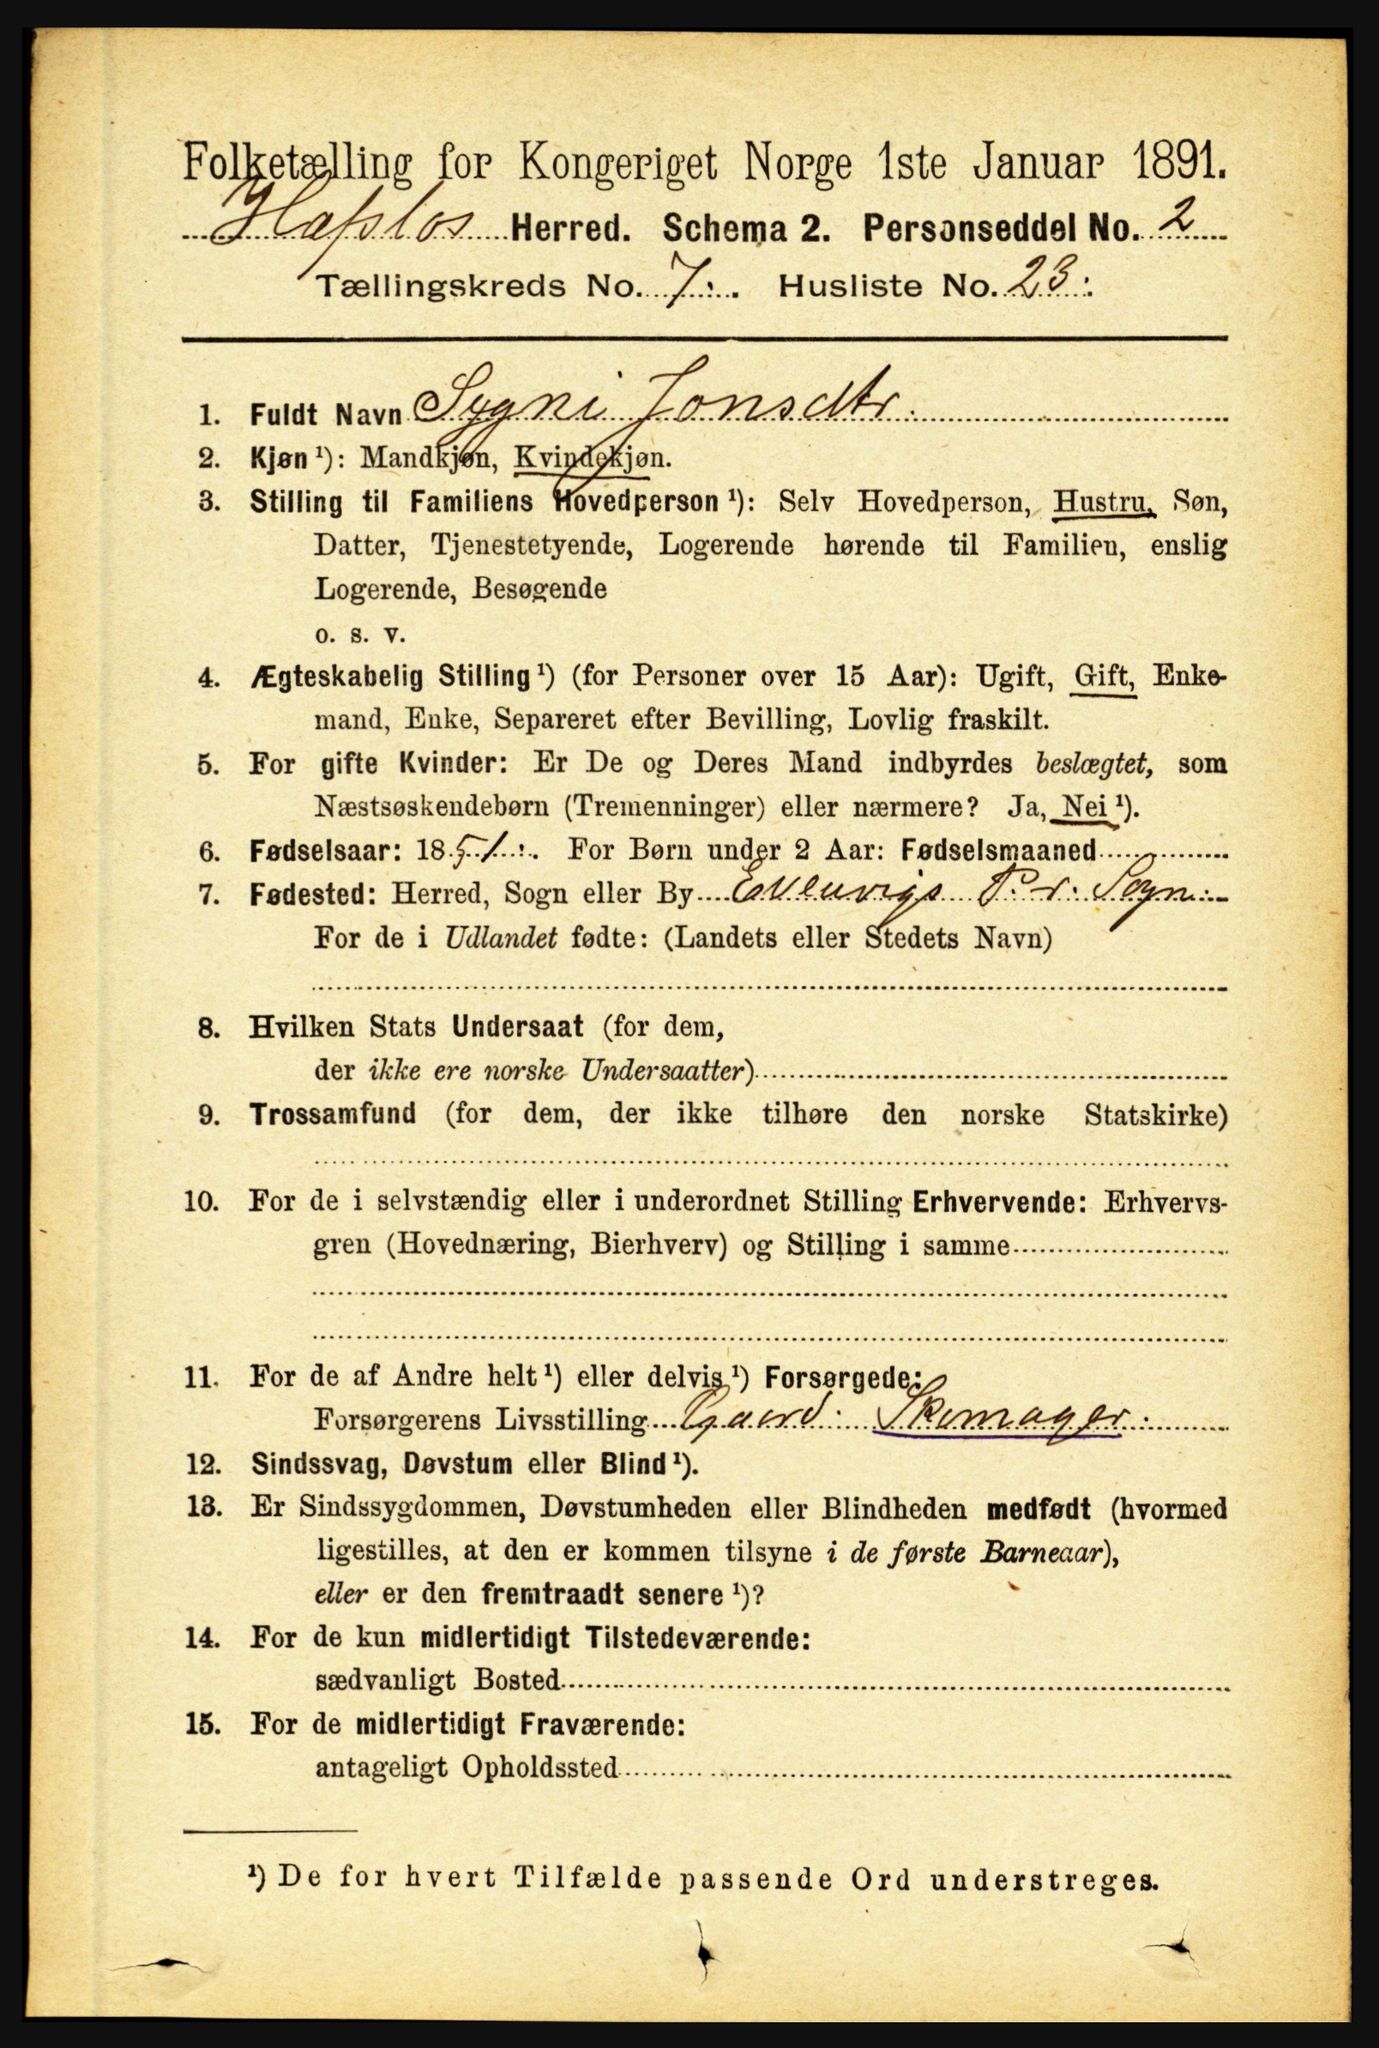 Folketælling for Kongeriget Norge 1ste Januar 1891.
Hafslos Herred. Schema 2. Personseddel No. 2
Tællingskreds No. 7. Husliste No. 23.
1. Fuldt Navn Sygni Jonsdtr.
2. Kjøn ¹): Mandkjøn, Kvindekjøn.
3. Stilling til Familiens Hovedperson ¹): Selv Hovedperson, Hustru, Søn,
Datter, Tjenestetyende, Logerende hørende til Familien, enslig
Logerende, Besøgende
o. s. v.
4. Ægteskabelig Stilling ¹) (for Personer over 15 Aar): Ugift, Gift, Enke-
mand, Enke, Separeret efter Bevilling, Lovlig fraskilt.
5. For gifte Kvinder: Er De og Deres Mand indbyrdes beslægtet, som
Næstsøskendebørn (Tremenninger) eller nærmere? Ja, Nei ¹).
6. Fødselsaar: 1851. For Børn under 2 Aar: Fødselsmaaned
7. Fødested: Herred, Sogn eller By Evenvigs P. r. Sogn.
For de i Udlandet fødte: (Landets eller Stedets Navn)
8. Hvilken Stats Undersaat (for dem,
der ikke ere norske Undersaatter)
9. Trossamfund (for dem, der ikke tilhøre den norske Statskirke)
10. For de i selvstændig eller i underordnet Stilling Erhvervende: Erhvervs-
gren (Hovednæring, Bierhverv) og Stilling i samme
11. For de af Andre helt ¹) eller delvis ¹) Forsørgede:
Forsørgerens Livsstilling Gaard. Skomager.
12. Sindssvag, Døvstum eller Blind ¹).
13. Er Sindssygdommen, Døvstumheden eller Blindheden medfødt (hvormed
ligestilles, at den er kommen tilsyne i de første Barneaar),
eller er den fremtraadt senere ¹)?
14. For de kun midlertidigt Tilstedeværende:
sædvanligt Bosted
15. For de midlertidigt Fraværende:
antageligt Opholdssted
¹) De for hvert Tilfælde passende Ord understreges.